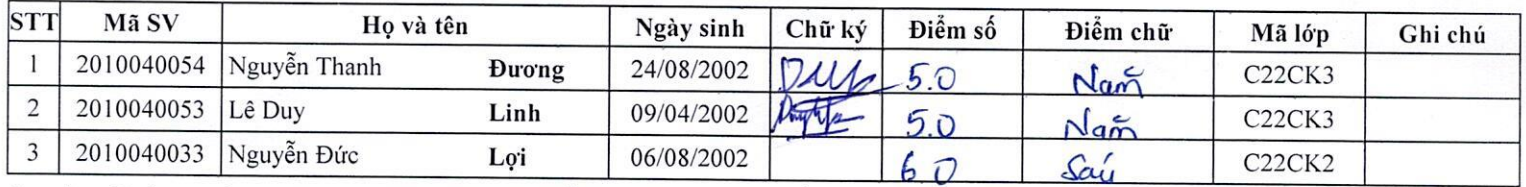 STT Mã SV Họ và tên Ngày sinh Chữ ký Điểm số Điểm chữ Mã lớp Ghi chú
1 2010040054 Nguyễn Thanh Đương 24/08/2002 5.0 Năm C22CK3
2 2010040053 Lê Duy Linh 09/04/2002 5.0 Năm C22CK3
3 2010040033 Nguyễn Đức Lợi 06/08/2002 6 0 Sáu C22CK2